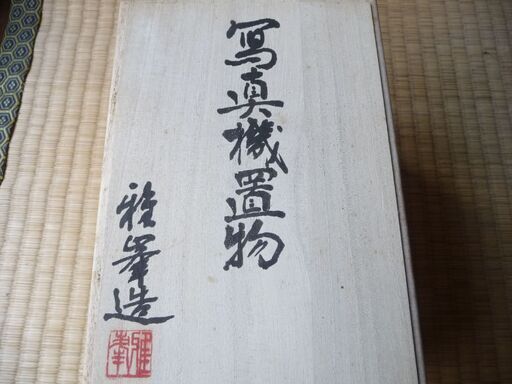 寫真機置物
雅峯造
雅峯